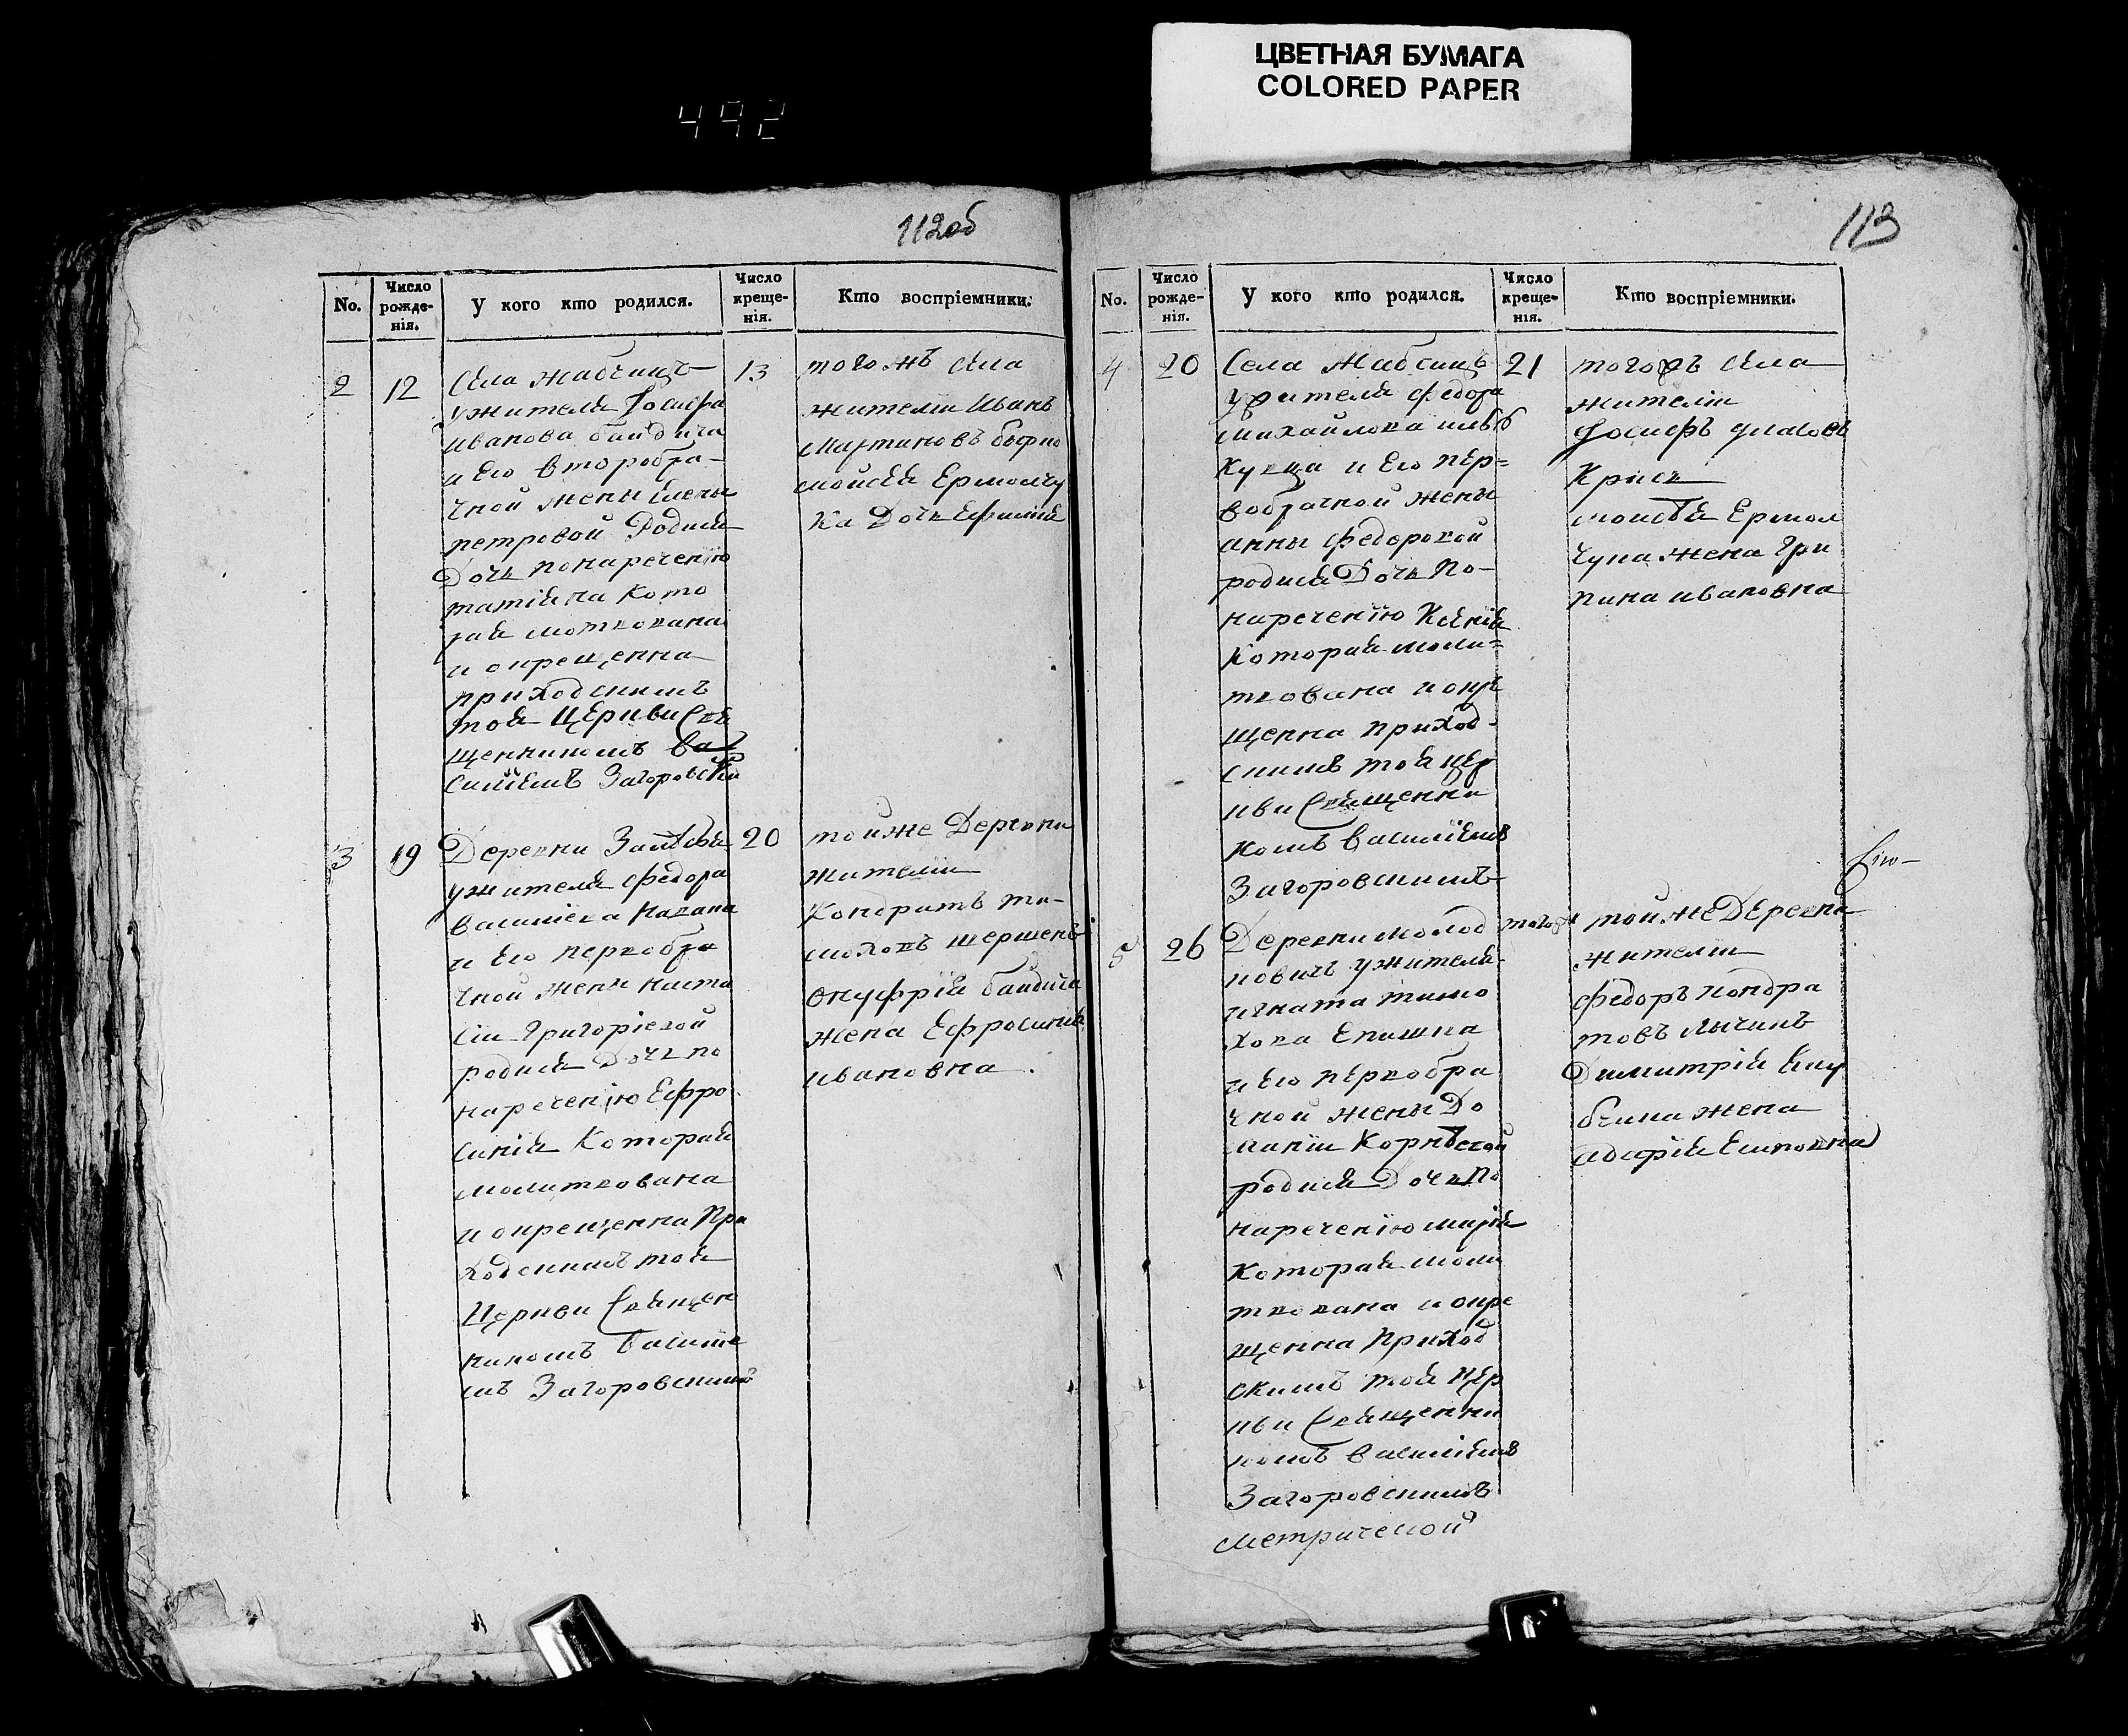 ЦВЕТНАЯ БУМАГА
COLORED PAPER
492
112об
No.
Число рожде-нія.
У кого кто родился.
Число креще-нія.
Кто воспріемники.
2
12
Села Жабчицъ
у жителя Іосифа
Иванова бандича
и Его второбра-
чной жены Елены
петровой Родися
Дочь понаречению
татіяна Кото
рая
и окрещенна
приходскимъ
тоя Церкви Свя
щенникомъ Ва
силіемъ Загоровски
13
тогожъ Села
жителіи Иванъ
Мартиновъ
моисея Ермолчу
Ка Дочь Ефимія
3
19
Деревни
у жителя Федора
василіева
и Его первобра
чной жены Наста
сіи Григоріевой
родися Дочь по
наречению Ефро
синія Которая
молиткована
и окрещенна При
ходскимъ тоя
Церкви Священ
никомъ Василіе
мъ Загоровскимъ
20
тойже Деревни
жителіи
Кондратъ ти-
моховъ шершенъ
Онуфрія бандича
жена Ефросинія
ивановна
113
No.
Число рожде-нія.
У кого кто родился.
Число креще-нія.
Кто воспріемники.
4
20
Села Жабчицъ
у жителя Федора
михайлова
и Его пер=
вобрачной жены
анны Федоровой
родися Дочь По-
наречению Ксенія
Которая моли=
ткована и окре
щенна приход-
скимъ тоя цер
кви Священни
комъ Василіемъ
Загоровскимъ
21
тогожъ Села
жителіи
Іосифъ
Крысь
моисея Ермол
чука жена Гри
пина ивановна
5
26
Деревни молод
ковичъ у жителя
игната тимо
хова Епишка
и Его первобра
чной жены До
мникіи Корнеевой
родися Дочь По
наречению марія
Которая моли
ткована и окре
щенна Приход
скимъ тоя Цер
кви Священни
комъ василіемъ
Загоровскимъ
тогожъ
тойже Деревни
жителіи
федоръ кондра
товъ лычикъ
Димитрія
жена
Есиповна
метрической